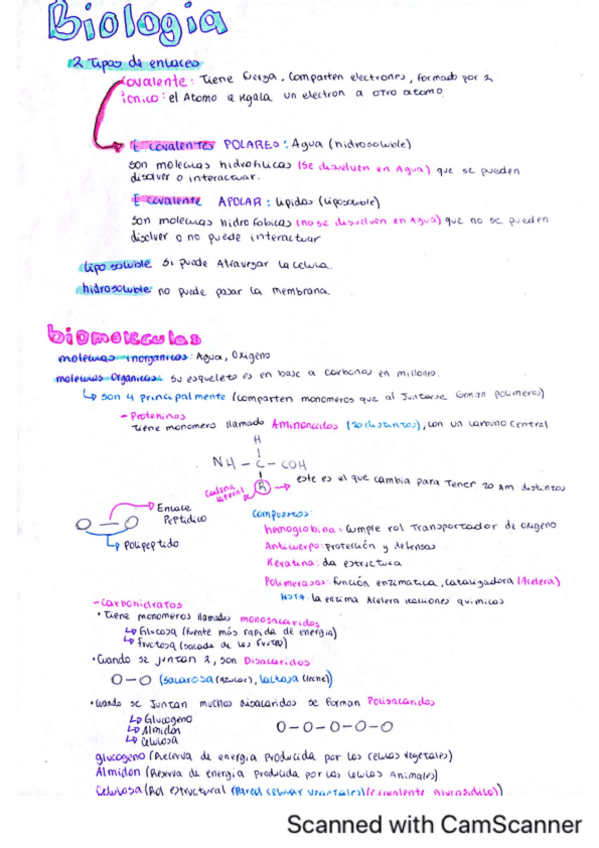 Biologia
2 Tipos de enlaces
Covalente: Tiene fuerza, comparten electrones, formado por 2
iónico: el Atomo q Regala un electron a otro atomo.
E covalentes POLARES: Agua (hidrosoluble)
son moleculas hidrofilicas (se disuelven en Agua) que se pueden
disolver o interactuar.
E covalente APOLAR: Lipidos (liposoluble)
Son moleculas hidrofobicas (no se disuelven en Agua) que no se pueden
disolver o no puede interactuar
liposoluble si puede Atravezar la celula.
hidrosoluble no puede pasar la membrana.
biomoleculas
moleculas inorganicas: Agua, Oxigeno
moleculas Organicas: su esqueleto es en base a carbonos en millones.
↳ son 4 principalmente (comparten monomeros que al juntarse forman polimeros)
- Proteninas
tiene monomero llamado Aminoacidos (20 distintos), con un carbono central
H
NH - C - COH
cadena lateral R → este es el que cambia para tener 20 Am distintos
O-O → Enlace Peptidico
↳ Polipeptido
Compuestos:
hemoglobina: cumple rol transportador de oxigeno
Anticuerpo: protección y defensas
Keratina: da estructura
Polimerasas: función enzimatica, catalizadora (Acelera)
NOTA: la enzima Acelera reacciones quimicas
- carbohidratos
• Tiene monomeros llamados monosacaridos
↳ Glucosa (fuente más rapida de energia)
↳ fructosa (sacada de las frutas)
• Cuando se juntan 2, son Disacaridos
O-O (sacarosa (azucar), lactosa (leche))
• Cuando se juntan muchos disacaridos se forman Polisacaridos
↳ Glucogeno
↳ Almidon
↳ Celulosa
O-O-O-O-O
glucogeno (Reserva de energia Producida por las celulas vegetales)
Almidon (Reserva de energia producida por las celulas Animales)
Celulosa (Rol estructural (Pared celular vegetales) (e covalente glucosidico))
Scanned with CamScanner